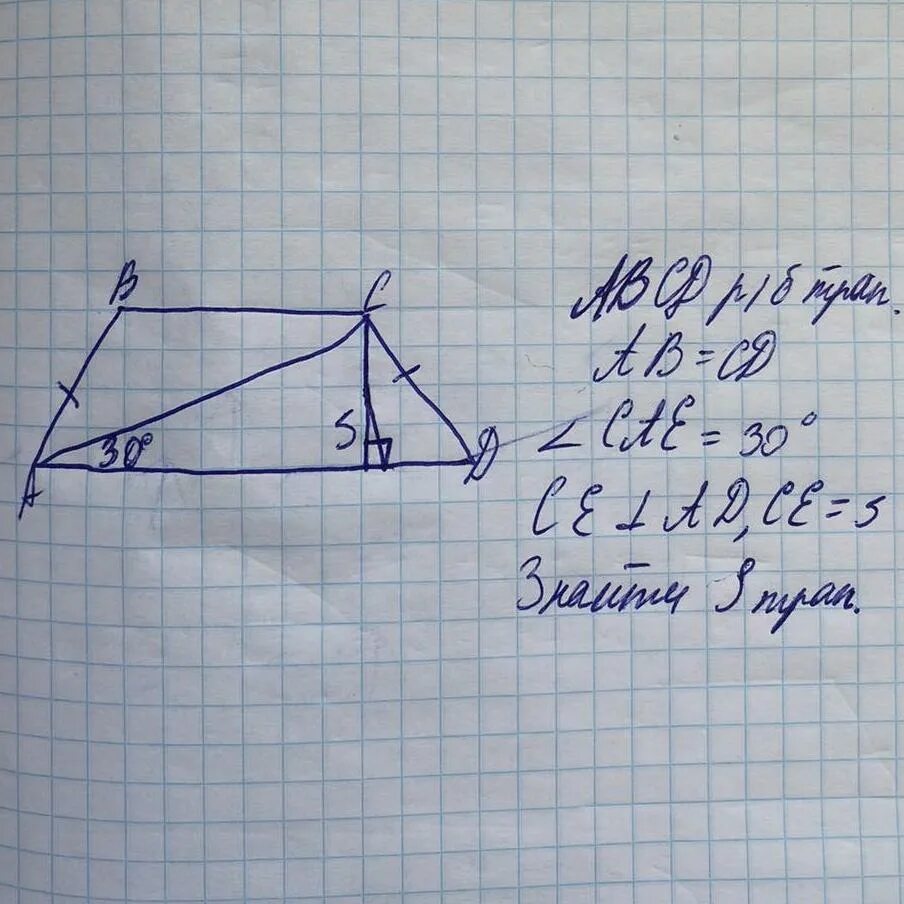 B
C
ABCD р/б трап.
AB = CD
∠CAE = 30°
CE ⊥ AD, CE = 5
Знайти S трап.
5
30°
D
A